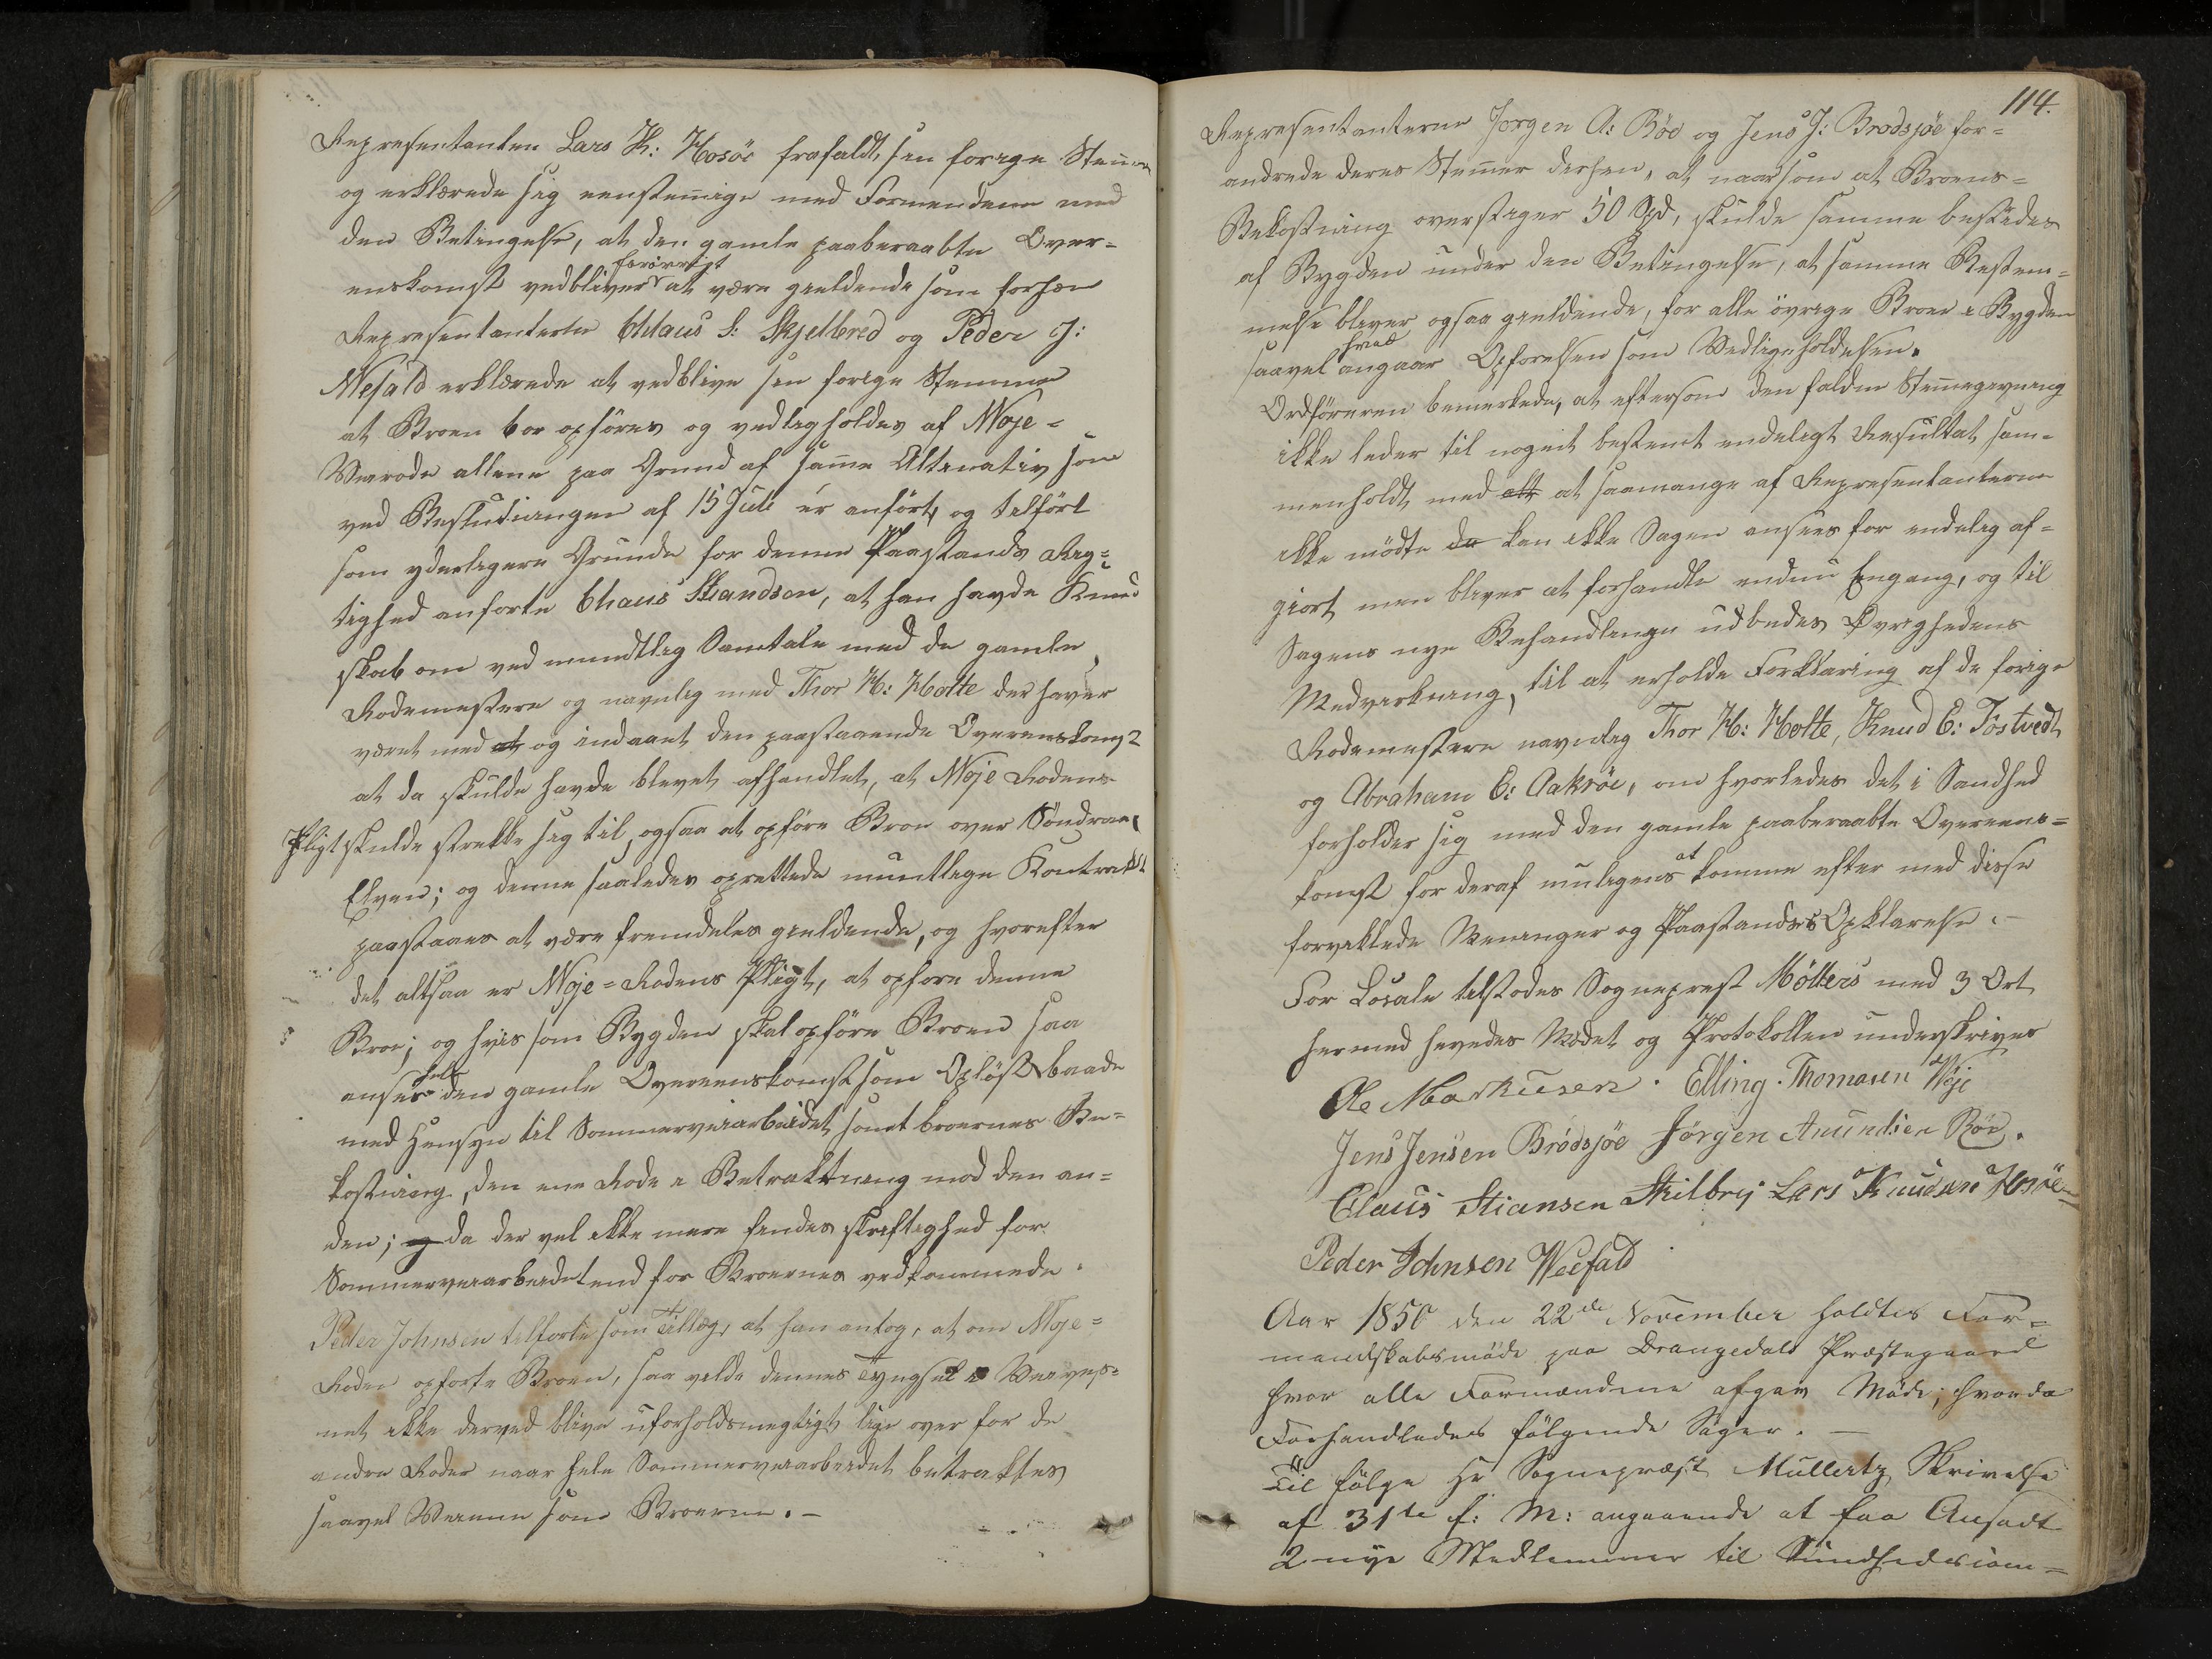 Repræsentanten Lars K: Hosøe frafaldt sin forrige Stemme
og erklærede sig eenstemig med Formendene med
den Betingelse, at den gamle paaberaabte Over-
enskomst vedbliver forøvrigt at være gieldende som forhen
Repræsentanterne Chlaus S: Skjelbred og Peder J:
Wefald erklærede at vedblive sin forige Stemme
at Broen bør opføres og vedligholdes af Woje-
Veirode allene paa Grund af samme Altenativ som
ved Beslutningen af 15 Juli er anført, og tilført
som yderligere Grunde for denne Paastands Rig-
tighed anførte Chaus Stiandsen, at han havde Kund
skab om ved mundtlig Samtale med de gamle
Rodemestere og navnlig med Thor H: Holte der haver
været med at og indgaaet den paastaaende Overenskomst
at da skulde havde blevet afhandlet, at Woje Rodens
Pligt skulde strekke sig til, ogsaa at opføre Broe over Søndraae
Elven; og denne saaledes oprettede muntlige Kontrakt
paastaaes at være fremdeles gieldende, og hvorefter
det altsaa er Woje-Rodens Pligt, at opføre denne
Broe; og hvis som Bygden skal opføre Broen saa
ansees hele den gamle Overeenskomst som Opløst baade
med Hensyn til Sommerveiarbeidet samt broernes Be-
kostning, den ene Rode i Betraktning mod den an-
den; og da der vel ikke mere findes skriftlighed for
Sommerveiarbeidet end for Broernes vedkommede.
Peder Johnsen tilførte som Tillæg, at han antog, at om Woje-
Roden opførte Broen, saa vilde dennes Tyngsel i Veivæs-
net ikke derved blive uforholdsmegtigt lige over for de
andre Roder naar hele Sommerveiarbeidet betraktes
saavel Veiene som Broerne. -
114.
Repræsentanterne Jørgen A: Røe og Jens J: Brødsjøe for-
andrede deres Stemmer derhen, at naar som at Broens-
Bekostning overstiger 50 Spd, skulde samme bestrides
af Bygden under den Betingelse, at samme Bestem-
melse bliver ogsaa gieldende, for alle øvrige Broer i Bygden
saavel hvad angaar Opførelsen som Vedligeholdelsen.
Ordføreren bemerkede, at eftersom den faldne Stemmegivning
ikke leder til noget bestemt endeligt Resultat, sam-
menholdt med alt at saamange af Repræsentanterne
ikke mødte da kan ikke Sagen ansees for endelig af-
giort men bliver at forhandle endnu Engang, og til
Sagens nye Behandling udbedes Øvrighedens
Medvirkning, til at erholde Forklaring af de forige
Rodemestere navnlig Thor H: Holte, Knud C: Tostvedt,
og Abraham C: Aakrøe, om hvorledes det i Sandhed
forholder sig med den gamle paaberaabte Overeens-
komst for deraf muligens at komme efter med disse
forviklede Meninger og Paastandes Opklarelse. -
For Locale tilstodes Sogneprest Møllers med 3 Ort
hermed hevedes Mødet og Protokollen underskrives
Ole Markusen. Elling Thomasen Woje
Jens Jensen Brødsjøe Jørgen Amundsen Röe.
Claus Stiansen Skilbrej Lars Knudsen Hosöe
Peder Johnsen Weefald
Aar 1850 den 22de November holdtes For-
mandskabsmøde paa Drangedals Præstegaard
hvor alle Formændene afgav Møde; hvorda
Forhandledes følgende Sager. —
Til følge Hr Sognepræst Mullertz Skrivelse
af 31te f: M: angaaende at faa Ansadt
2 nye Medlemmer til Sundhedscom-